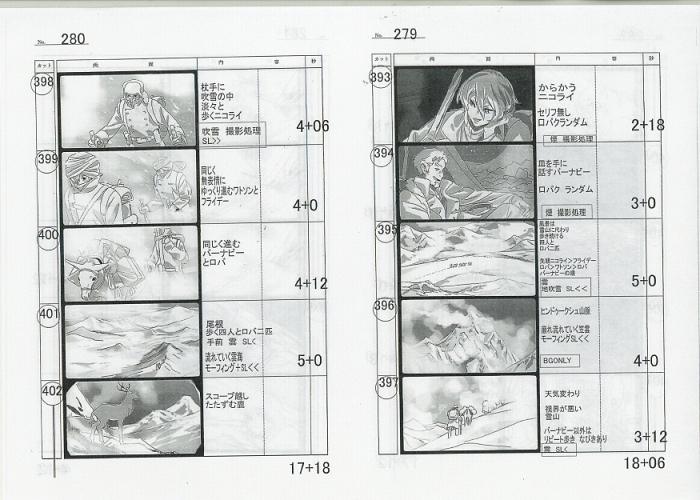 No. 280
カット 画 面 内 容 秒
398
杖手に
吹雪の中
淡々と
歩くニコライ
吹雪 撮影処理
SL>>
4+06
399
同じく
無表情に
ゆっくり進むワトソンと
フライデー
4+0
400
同じく進む
バーナビー
とロバ
4+12
401
尾根
歩く四人とロバ二匹
手前 雲 SL<
流れていく雲海
モーフィング+SL<<
5+0
402
スコープ越し
たたずむ鹿
17+18
No. 279
カット 画 面 内 容 秒
393
からかう
ニコライ
セリフ無し
ロパクランダム
煙 撮影処理
2+18
394
皿を手に
話すバーナビー
ロパク ランダム
煙 撮影処理
3+0
395
風景は
雪山に代わり
歩き続ける
四人と
ロバ二匹
先頭ニコライ>フライデー
ロバ>ワトソン>ロバ
バーナビーの順
雲
地吹雪 SL<<
5+0
396
ヒンドゥークシュ山脈
崩れ流れていく笠雲
モーフィングSL<<
BGONLY
4+0
397
天気変わり
視界が悪い
雪山
バーナビー以外は
リピート歩き なびきあり
雲 SL<
3+12
18+06